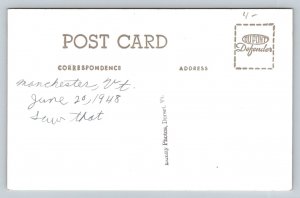 4-
POST CARD
DUPONT
Defender
CORRESPONDENCE
ADDRESS
Manchester, Vt.
June 20, 1948
Saw that
Photos, Dorset, Vt.